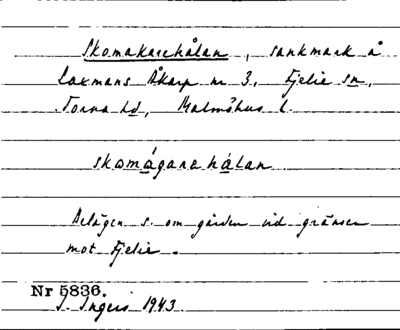 Skomakarehålan, sankmark å
Laxmans Åkarp nr 3, Fjelie sn,
Torna hd, Malmöhus l.
skomágarahálan
Belägen s. om gården vid gränsen
mot Fjelie.
Nr 5836.
I. Ingers 1943